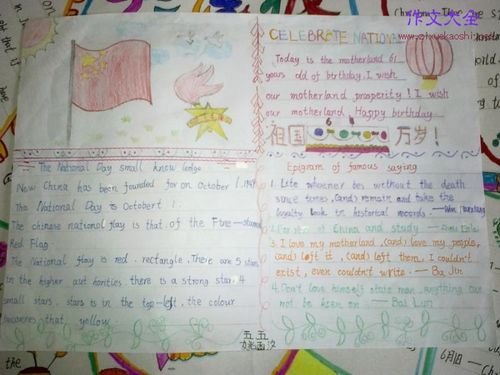 作文大全
CELEBRATE NATIONAL
Today is the motherland 61
years old of birthday. I wish
our motherland prosperity! I wish
our motherland Happy birthday
祖国 万岁！
The National Day small know ledge
New China has been founded for on October 1. 1949.
The National Day is Octobert 1.
The chinese national flag is that of the Five-starred
Red Flag.
The National flag is red. rectangle. There are 5 stars
in the higher authorities, there is a strong star. 4
small stars. stars is in the top-left, the colour
that, yellow.
Epigram of famous saying
1. Life whenever bes without the death
since times, (and) remain and take the
loyalty look in historical records. — Wen
2. For rise of China and study —
3. I love my motherland, (and) love my people,
(and) left it, (and) left them, I couldn't
exist, even couldn't write. — Ba Jin
4. Don't love himself state man, anything can
not be keen on — Bai Lun
五 五